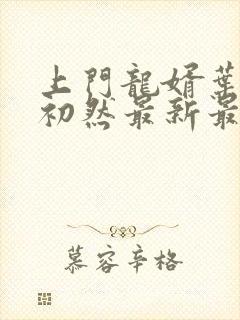 上門龍婿葉
初然最新最
慕容辛格